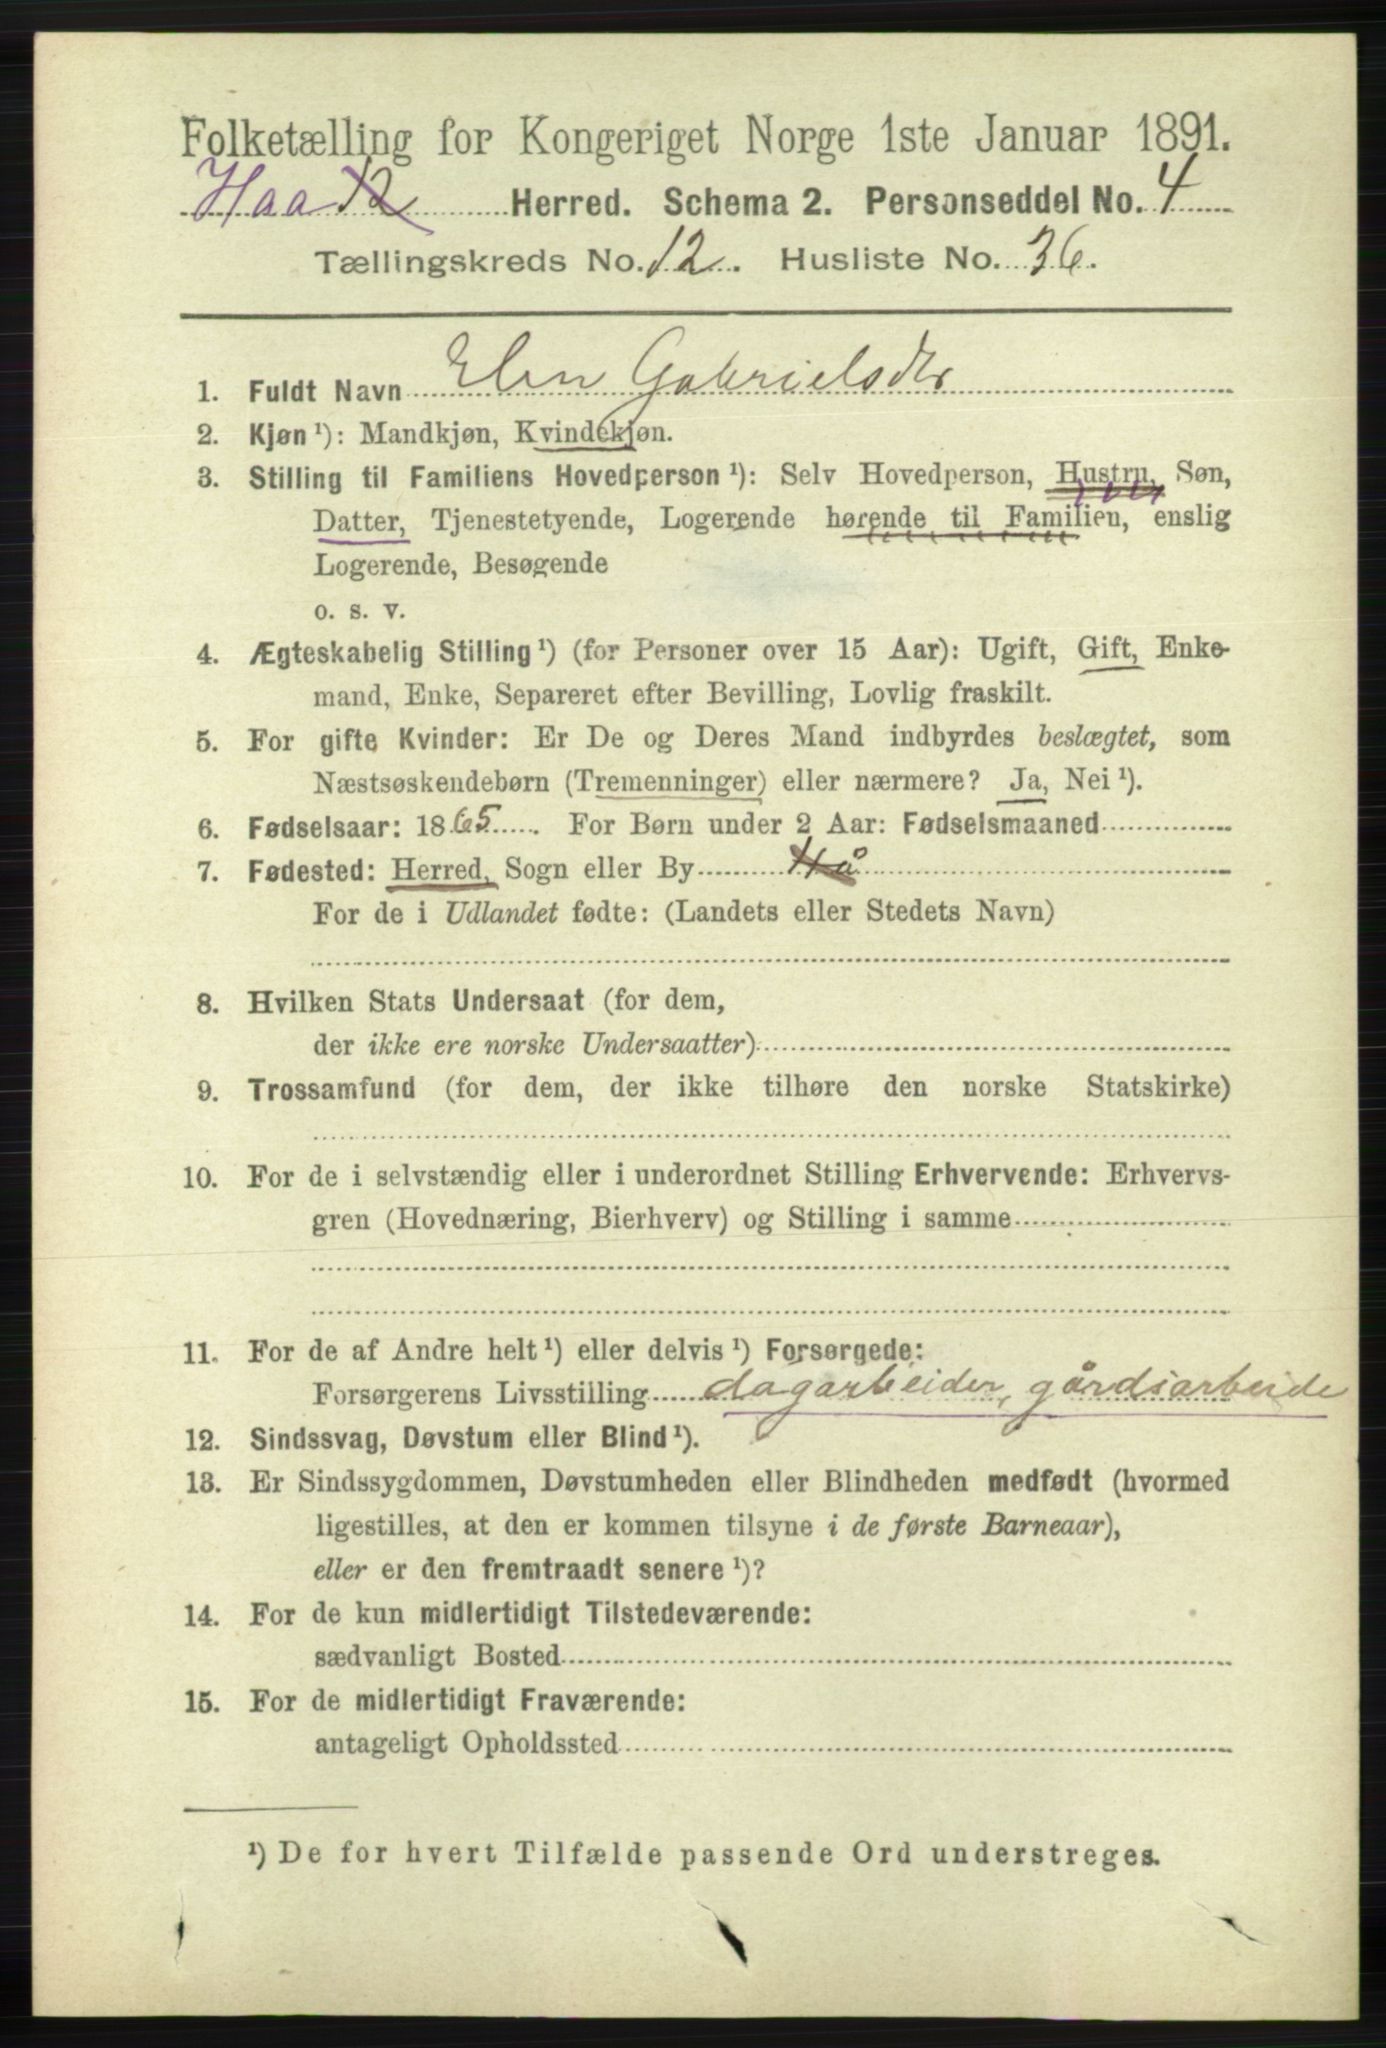 Folketælling for Kongeriget Norge 1ste Januar 1891.
Haa 12 Herred. Schema 2. Personseddel No. 4
Tællingskreds No. 12. Husliste No. 36.
1. Fuldt Navn Elen Gabrielsdtr
2. Kjøn ¹): Mandkjøn, Kvindekjøn.
3. Stilling til Familiens Hovedperson ¹): Selv Hovedperson, Hustru, Søn,
Datter, Tjenestetyende, Logerende hørende til Familien, enslig
Logerende, Besøgende
o. s. v.
4. Ægteskabelig Stilling ¹) (for Personer over 15 Aar): Ugift, Gift, Enke-
mand, Enke, Separeret efter Bevilling, Lovlig fraskilt.
5. For gifte Kvinder: Er De og Deres Mand indbyrdes beslægtet, som
Næstsøskendebørn (Tremenninger) eller nærmere? Ja, Nei ¹).
6. Fødselsaar: 1865. For Børn under 2 Aar: Fødselsmaaned
7. Fødested: Herred, Sogn eller By Hå
For de i Udlandet fødte: (Landets eller Stedets Navn)
8. Hvilken Stats Undersaat (for dem,
der ikke ere norske Undersaatter)
9. Trossamfund (for dem, der ikke tilhøre den norske Statskirke)
10. For de i selvstændig eller i underordnet Stilling Erhvervende: Erhvervs-
gren (Hovednæring, Bierhverv) og Stilling i samme
11. For de af Andre helt ¹) eller delvis ¹) Forsørgede:
Forsørgerens Livsstilling dagarbeider, gårdsarbeide
12. Sindssvag, Døvstum eller Blind ¹).
13. Er Sindssygdommen, Døvstumheden eller Blindheden medfødt (hvormed
ligestilles, at den er kommen tilsyne i de første Barneaar),
eller er den fremtraadt senere ¹)?
14. For de kun midlertidigt Tilstedeværende:
sædvanligt Bosted
15. For de midlertidigt Fraværende:
antageligt Opholdssted
¹) De for hvert Tilfælde passende Ord understreges.